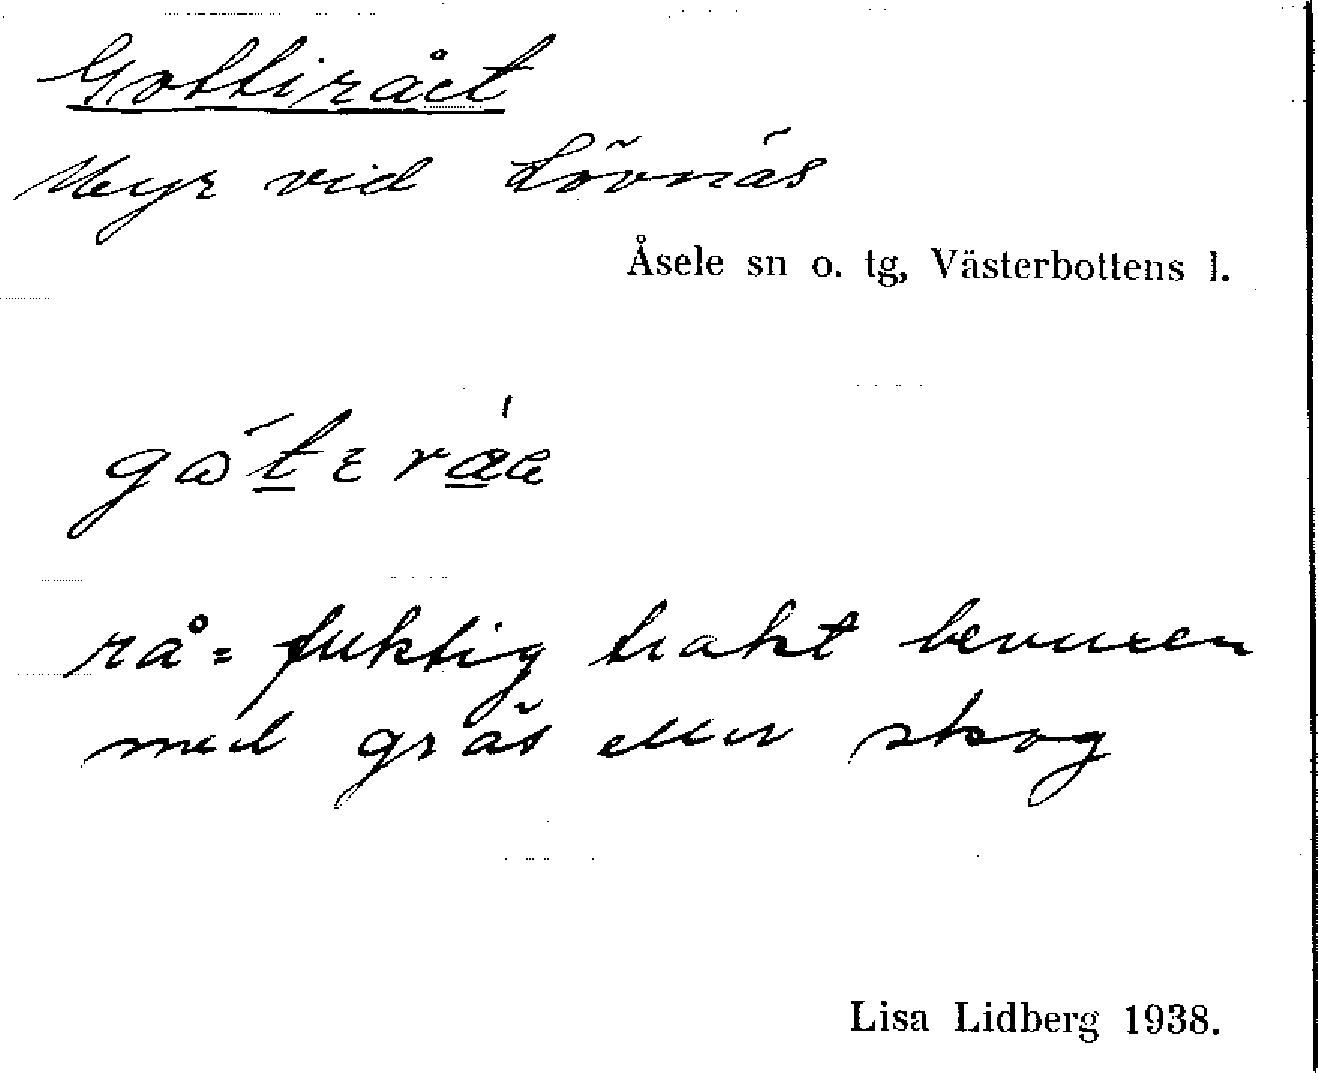 Gottiråct
Myr vid Lövnäs
Åsele sn o. tg, Västerbottens l.
rå = fuktig trakt bevuxen
med gräs eller skog
Lisa Lidberg 1938.